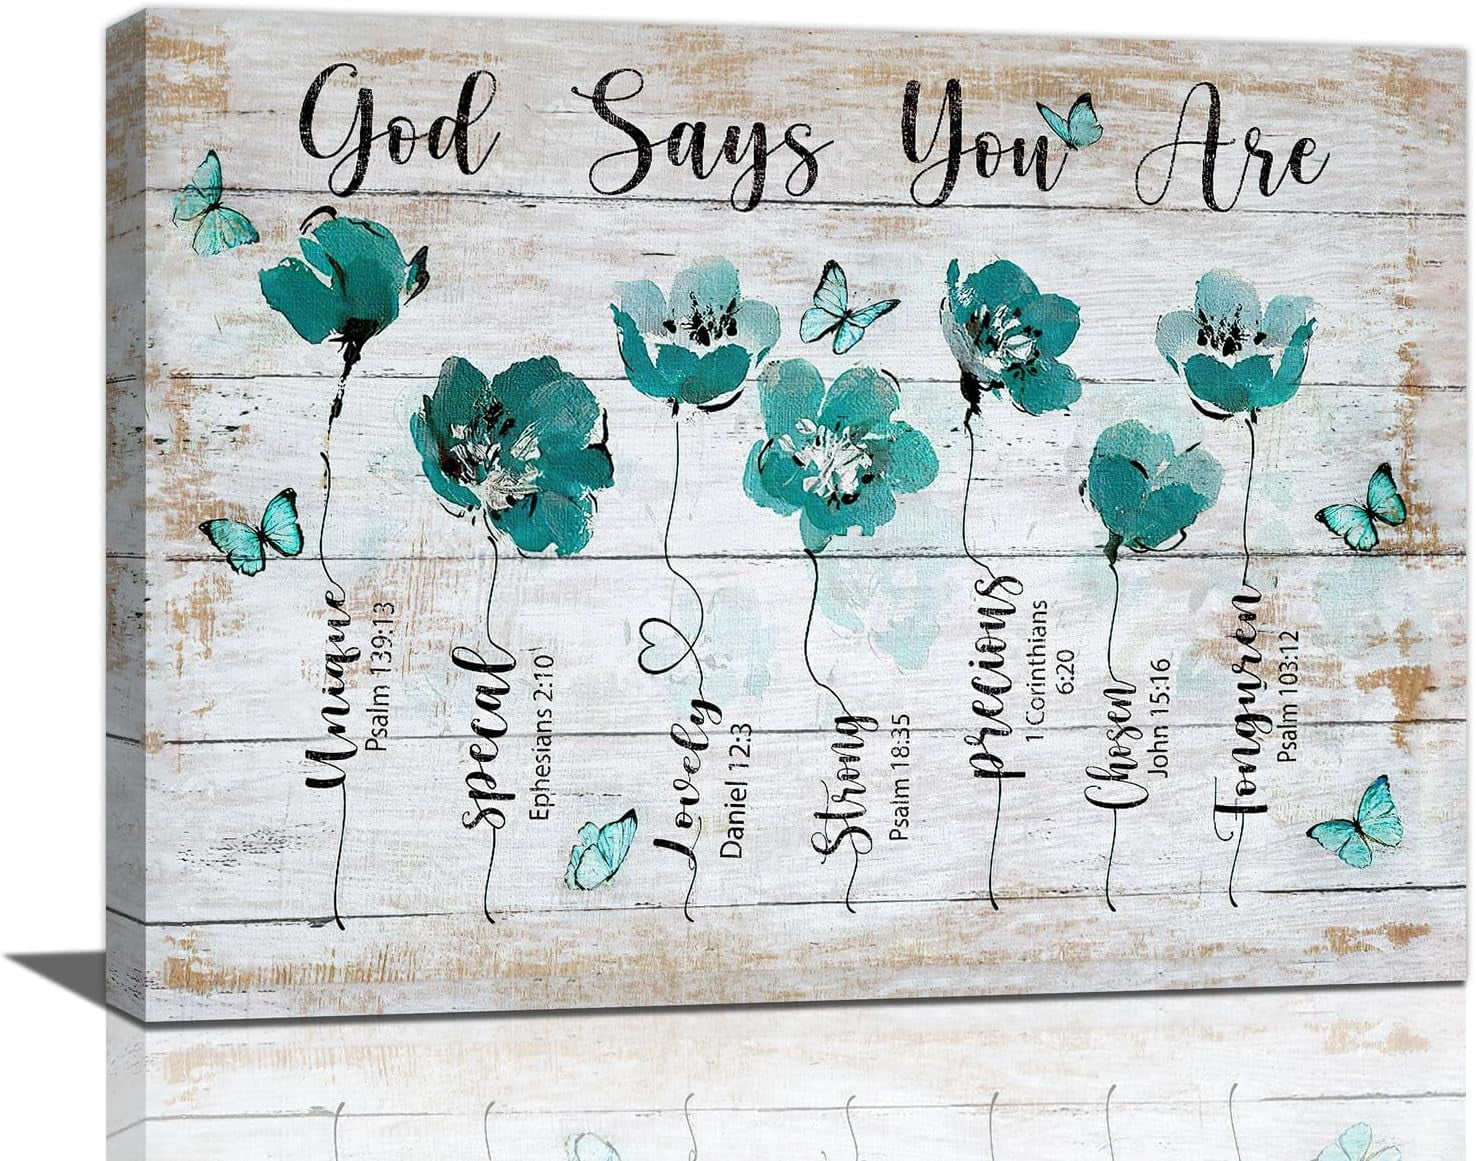 God Says You Are
Unique
Psalm 139:13
specal
Ephesians 2:10
Lovely
Daniel 12:3
Strong
Psalm 18:35
precious
1 Corinthians
6:20
Chosen
John 15:16
Fonguren
Psalm 103:12